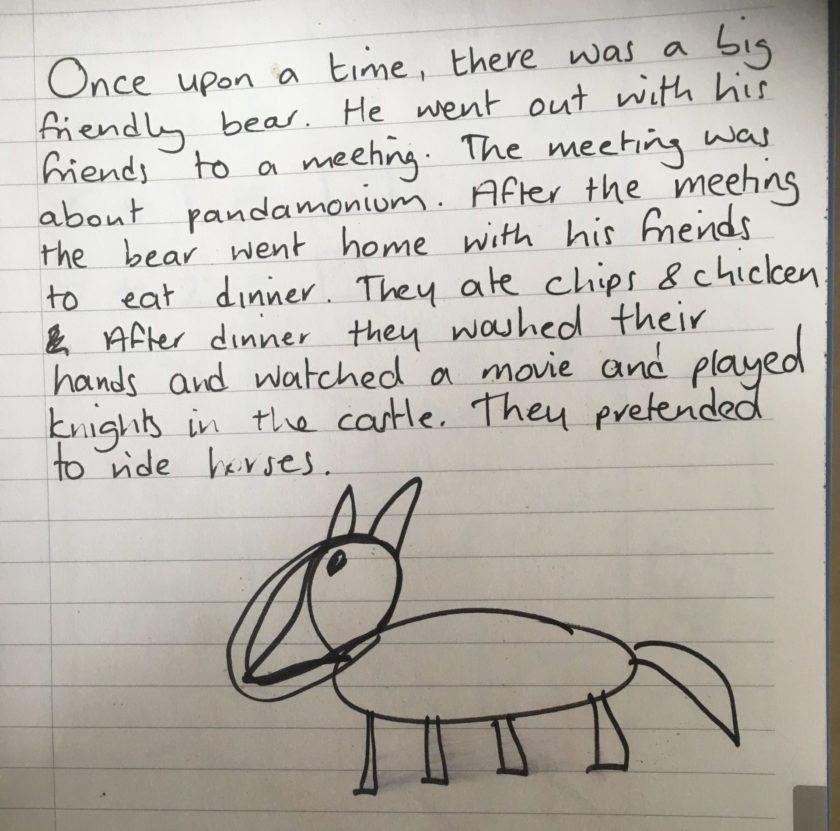 Once upon a time, there was a big
friendly bear. He went out with his
friends to a meeting. The meeting was
about pandamonium. After the meeting
the bear went home with his friends
to eat dinner. They ate chips & chicken
& After dinner they washed their
hands and watched a movie and played
knights in the castle. They pretended
to ride horses.